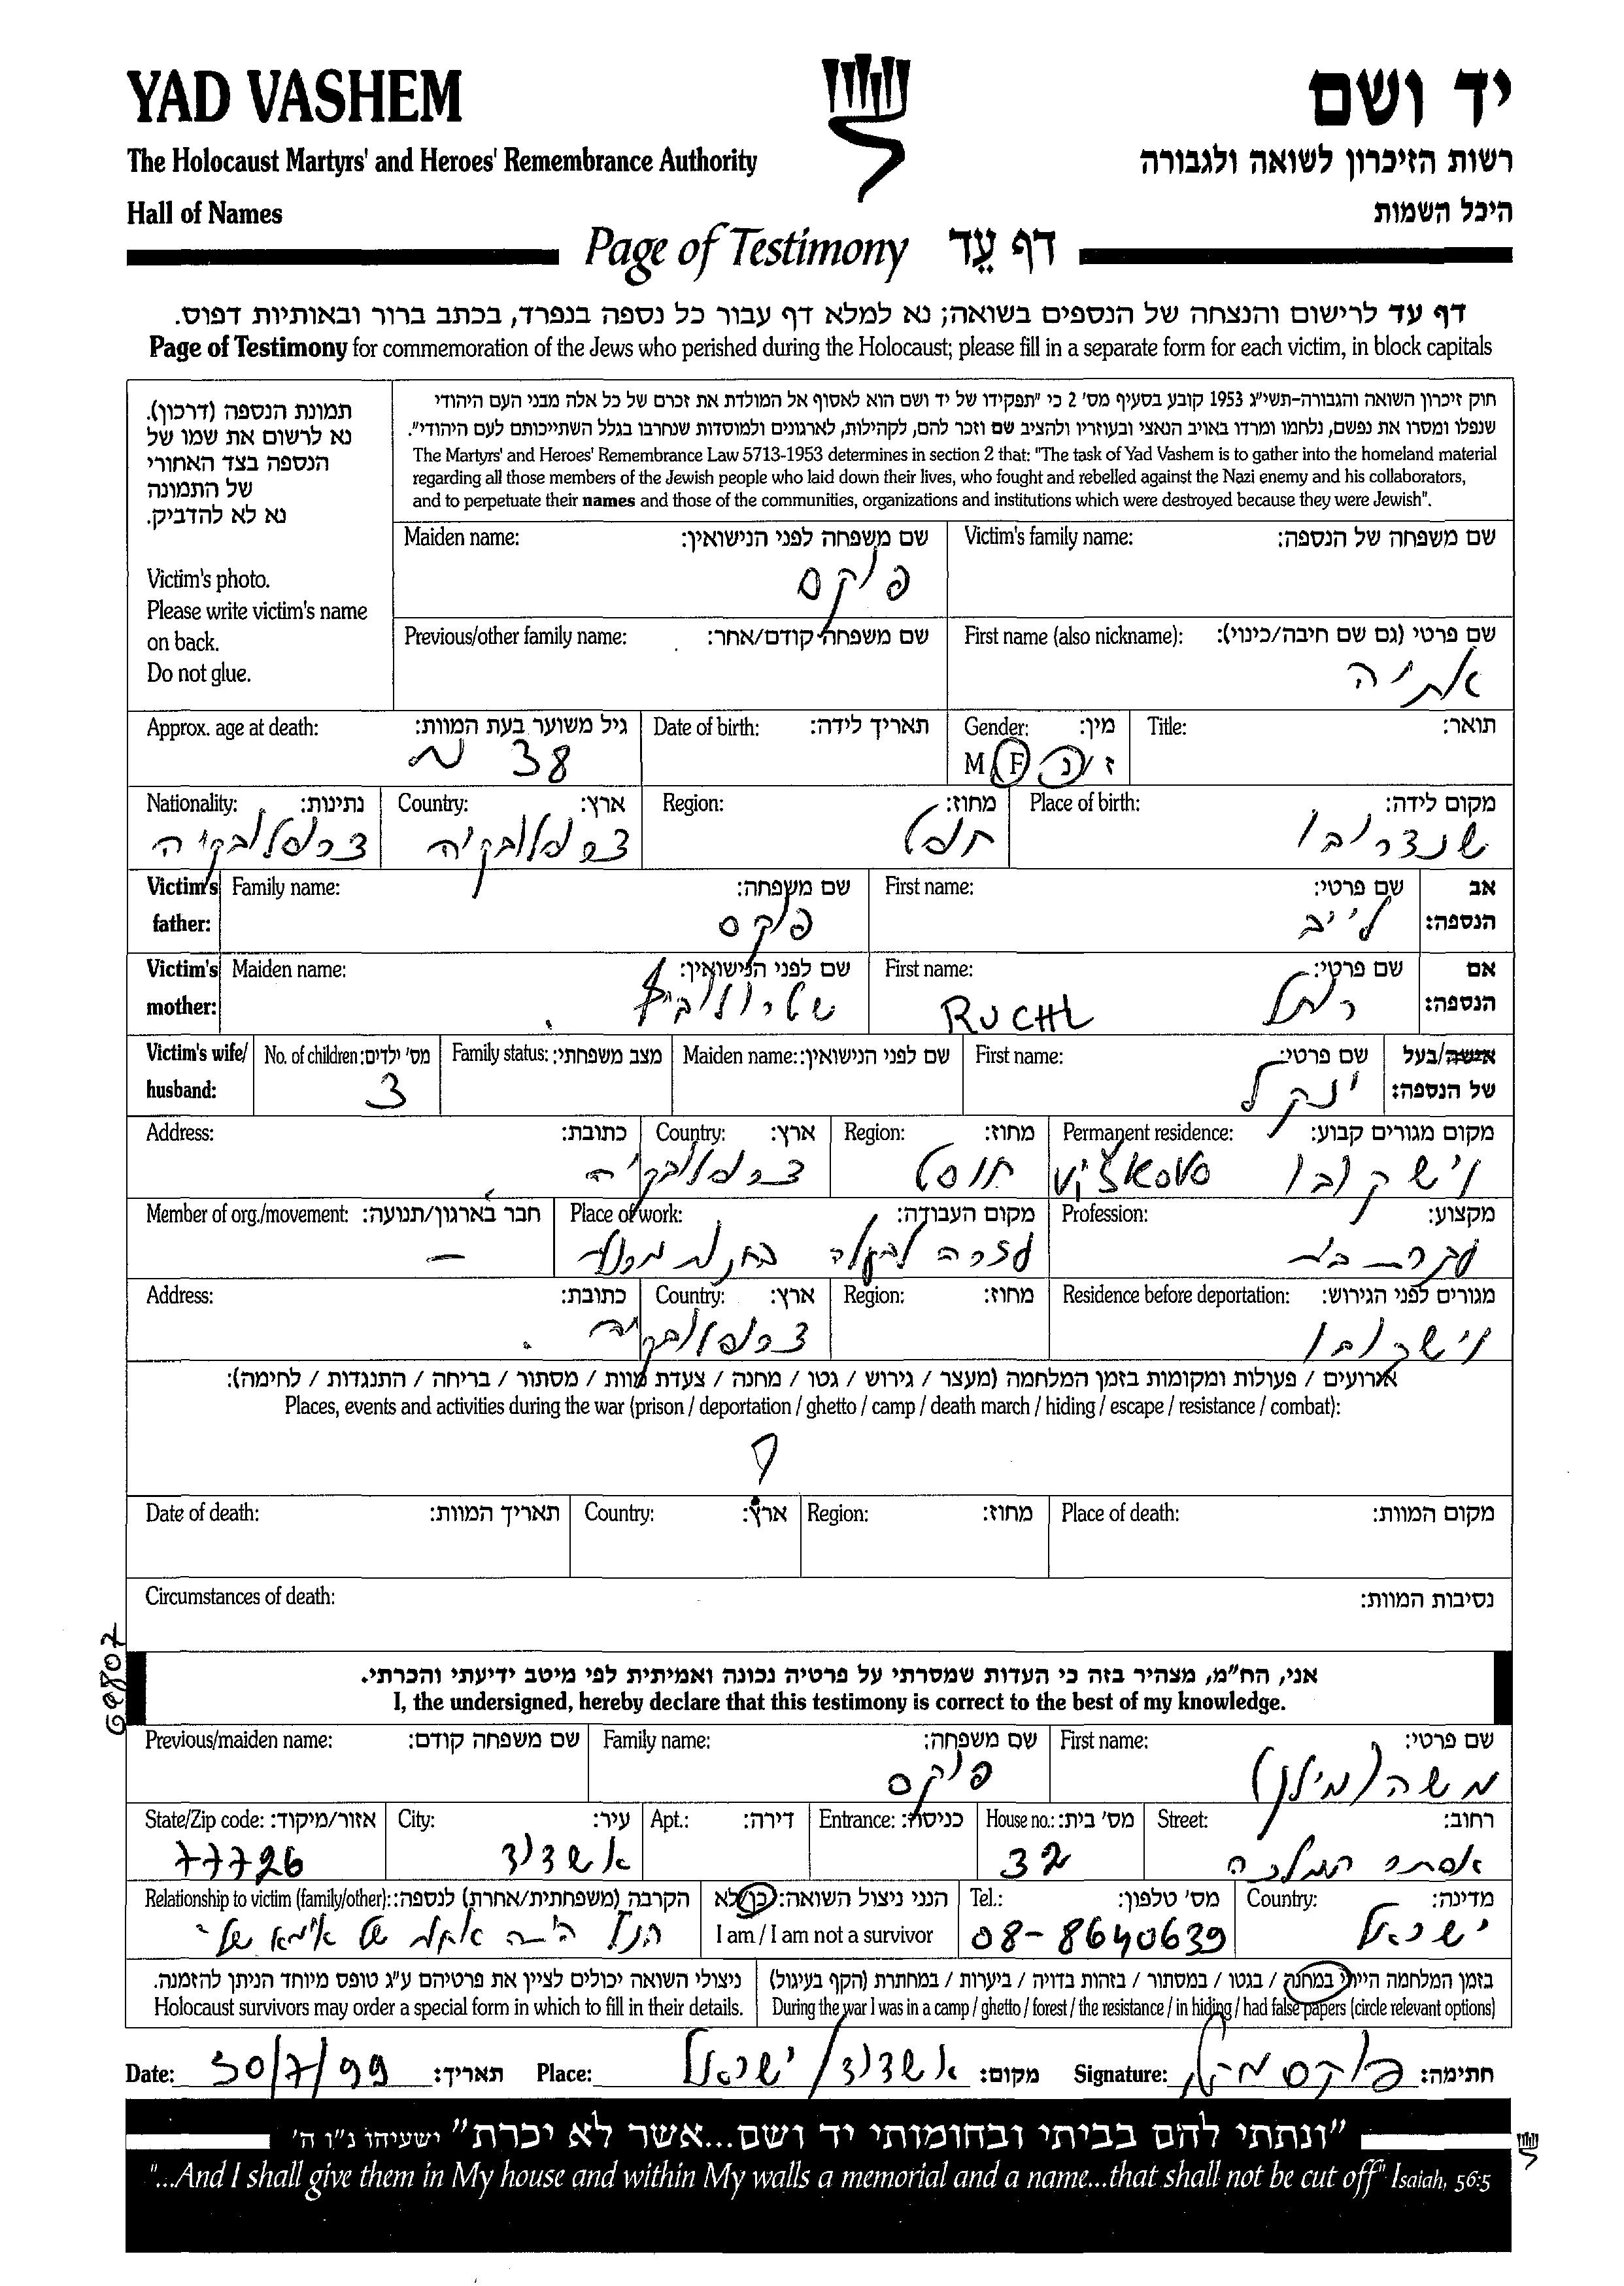 YAD VASHEM
יד ושם
The Holocaust Martyrs' and Heroes' Remembrance Authority
רשות הזיכרון לשואה ולגבורה
Hall of Names
היכל השמות
Page of Testimony דף עֵד
דף עד לרישום והנצחה של הנספים בשואה; נא למלא דף עבור כל נספה בנפרד, בכתב ברור ובאותיות דפוס.
Page of Testimony for commemoration of the Jews who perished during the Holocaust; please fill in a separate form for each victim, in block capitals
תמונת הנספה (דרכון).
נא לרשום את שמו של
הנספה בצד האחורי
של התמונה
נא לא להדביק.
Victim's photo.
Please write victim's name
on back.
Do not glue.
חוק זיכרון השואה והגבורה-תשי״ג 1953 קובע בסעיף מס׳ 2 כי ״תפקידו של יד ושם הוא לאסוף אל המולדת את זכרם של כל אלה מבני העם היהודי
שנפלו ומסרו את נפשם, נלחמו ומרדו באויב הנאצי ובעוזריו ולהציב שם וזכר להם, לקהילות, לארגונים ולמוסדות שנחרבו בגלל השתייכותם לעם היהודי״.
The Martyrs' and Heroes' Remembrance Law 5713-1953 determines in section 2 that: "The task of Yad Vashem is to gather into the homeland material
regarding all those members of the Jewish people who laid down their lives, who fought and rebelled against the Nazi enemy and his collaborators,
and to perpetuate their names and those of the communities, organizations and institutions which were destroyed because they were Jewish".
Victim's family name: שם משפחה של הנספה:
Maiden name: שם משפחה לפני הנישואין:
פוקס
First name (also nickname): שם פרטי (גם שם חיבה/כינוי):
Previous/other family name: שם משפחה קודם/אחר:
Title: תואר:
Gender: מין:
M F ז / נ
Date of birth: תאריך לידה:
Approx. age at death: גיל משוער בעת המוות:
38
Place of birth: מקום לידה:
Region: מחוז:
חוסט
Country: ארץ:
צכוסלובקיה
Nationality: נתינות:
צכוסלובקיה
אב הנספה:
First name: שם פרטי:
לייב
Family name: שם משפחה:
פוקס
Victim's father:
אם הנספה:
First name: שם פרטי:
רחל RUCHL
Maiden name: שם לפני הנישואין:
Victim's mother:
אישה/בעל של הנספה:
First name: שם פרטי:
ינקל
Maiden name: שם לפני הנישואין:
Family status: מצב משפחתי:
No. of children: מס׳ ילדים:
3
Victim's wife/ husband:
Permanent residence: מקום מגורים קבוע:
וישקובו
Region: מחוז:
חוסט
Country: ארץ:
צכוסלובקיה
Address: כתובת:
Profession: מקצוע:
עקרת בית
Place of work: מקום העבודה:
עזרה לבעלה בחנות מכולת
Member of org./movement: חבר בארגון/תנועה:
—
Residence before deportation: מגורים לפני הגירוש:
וישקובו
Region: מחוז:
Country: ארץ:
צכוסלובקיה
Address: כתובת:
אירועים / פעולות ומקומות בזמן המלחמה (מעצר / גירוש / גטו / מחנה / צעדת מוות / מסתור / בריחה / התנגדות / לחימה):
Places, events and activities during the war (prison / deportation / ghetto / camp / death march / hiding / escape / resistance / combat):
?
Place of death: מקום המוות:
Region: מחוז:
Country: ארץ:
Date of death: תאריך המוות:
Circumstances of death: נסיבות המוות:
אני, הח״מ, מצהיר בזה כי העדות שמסרתי על פרטיה נכונה ואמיתית לפי מיטב ידיעתי והכרתי.
I, the undersigned, hereby declare that this testimony is correct to the best of my knowledge.
First name: שם פרטי:
משה (מילן)
Family name: שם משפחה:
פוקס
Previous/maiden name: שם משפחה קודם:
Street: רחוב:
אסתר המלכה
House no.: מס׳ בית:
32
Entrance: כניסה:
Apt.: דירה:
City: עיר:
אשדוד
State/Zip code: אזור/מיקוד:
77726
Country: מדינה:
ישראל
Tel.: מס׳ טלפון:
08-8640639
הנני ניצול השואה: כן/לא
I am / I am not a survivor
Relationship to victim (family/other): הקרבה (משפחתית/אחרת) לנספה:
בזמן המלחמה הייתי במחנה / בגטו / במסתור / בזהות בדויה / ביערות / במחתרת (הקף בעיגול)
During the war I was in a camp / ghetto / forest / the resistance / in hiding / had false papers (circle relevant options)
ניצולי השואה יכולים לציין את פרטיהם ע״ג טופס מיוחד הניתן להזמנה.
Holocaust survivors may order a special form in which to fill in their details.
Date: 30/7/99 תאריך: Place: אשדוד/ישראל מקום: Signature: פוקס מילן חתימה:
״ונתתי להם בביתי ובחומותי יד ושם...אשר לא יכרת״ ישעיהו נ״ו ה׳
"...And I shall give them in My house and within My walls a memorial and a name...that shall not be cut off" Isaiah, 56:5